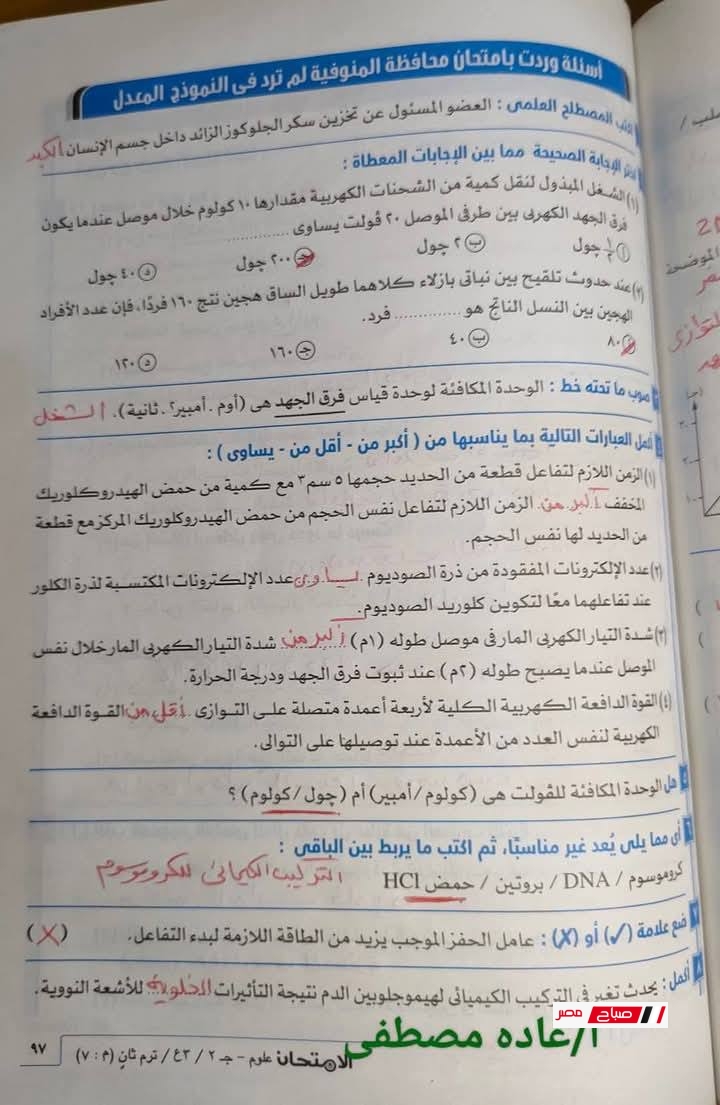 أسئلة وردت بامتحان محافظة المنوفية لم ترد فى النموذج المعدل
اكتب المصطلح العلمى : العضو المسئول عن تخزين سكر الجلوكوز الزائد داخل جسم الإنسان الكبد
الإجابة الصحيحة مما بين الإجابات المعطاة :
(١) الشغل المبذول لنقل كمية من الشحنات الكهربية مقدارها ١٠ كولوم خلال موصل عندما يكون
فرق الجهد الكهربى بين طرفى الموصل ٢٠ ڤولت يساوى .............
أ ١/٢ چول ب ٢ چول ج ٢٠٠ چول د ٤٠ چول
(٢) عند حدوث تلقيح بين نباتى بازلاء كلاهما طويل الساق هجين نتج ١٦٠ فردًا، فإن عدد الأفراد
الهجين بين النسل الناتج هو ............. فرد.
أ ٨٠ ب ٤٠ ج ١٦٠ د ١٢٠
صوب ما تحته خط : الوحدة المكافئة لوحدة قياس فرق الجهد هى (أوم . أمبير٢ . ثانية). الشغل
أكمل العبارات التالية بما يناسبها من ( أكبر من - أقل من - يساوى ) :
(١) الزمن اللازم لتفاعل قطعة من الحديد حجمها ٥ سم٣ مع كمية من حمض الهيدروكلوريك
المخفف أكبر من الزمن اللازم لتفاعل نفس الحجم من حمض الهيدروكلوريك المركز مع قطعة
من الحديد لها نفس الحجم.
(٢) عدد الإلكترونات المفقودة من ذرة الصوديوم يساوى عدد الإلكترونات المكتسبة لذرة الكلور
عند تفاعلهما معًا لتكوين كلوريد الصوديوم.
(٣) شدة التيار الكهربى المار فى موصل طوله (١م) أكبر من شدة التيار الكهربى المار خلال نفس
الموصل عندما يصبح طوله (٢م) عند ثبوت فرق الجهد ودرجة الحرارة.
(٤) القوة الدافعة الكهربية الكلية لأربعة أعمدة متصلة على التوازى أقل من القوة الدافعة
الكهربية لنفس العدد من الأعمدة عند توصيلها على التوالى.
هل الوحدة المكافئة للڤولت هى (كولوم/أمبير) أم (چول/كولوم) ؟
أى مما يلى يُعد غير مناسبًا، ثم اكتب ما يربط بين الباقى :
كروموسوم / DNA / بروتين / حمض HCl التركيب الكيميائى للكروموسوم
ضع علامة (✓) أو (✗) : عامل الحفز الموجب يزيد من الطاقة اللازمة لبدء التفاعل. (✗)
أكمل : يحدث تغير فى التركيب الكيميائى لهيموجلوبين الدم نتيجة التأثيرات الخلوية للأشعة النووية.
صباح مصر
أ/غاده مصطفى
الامتحان علوم - جـ ٢ / ٣ع / ترم ثانٍ (م : ٧) ٩٧